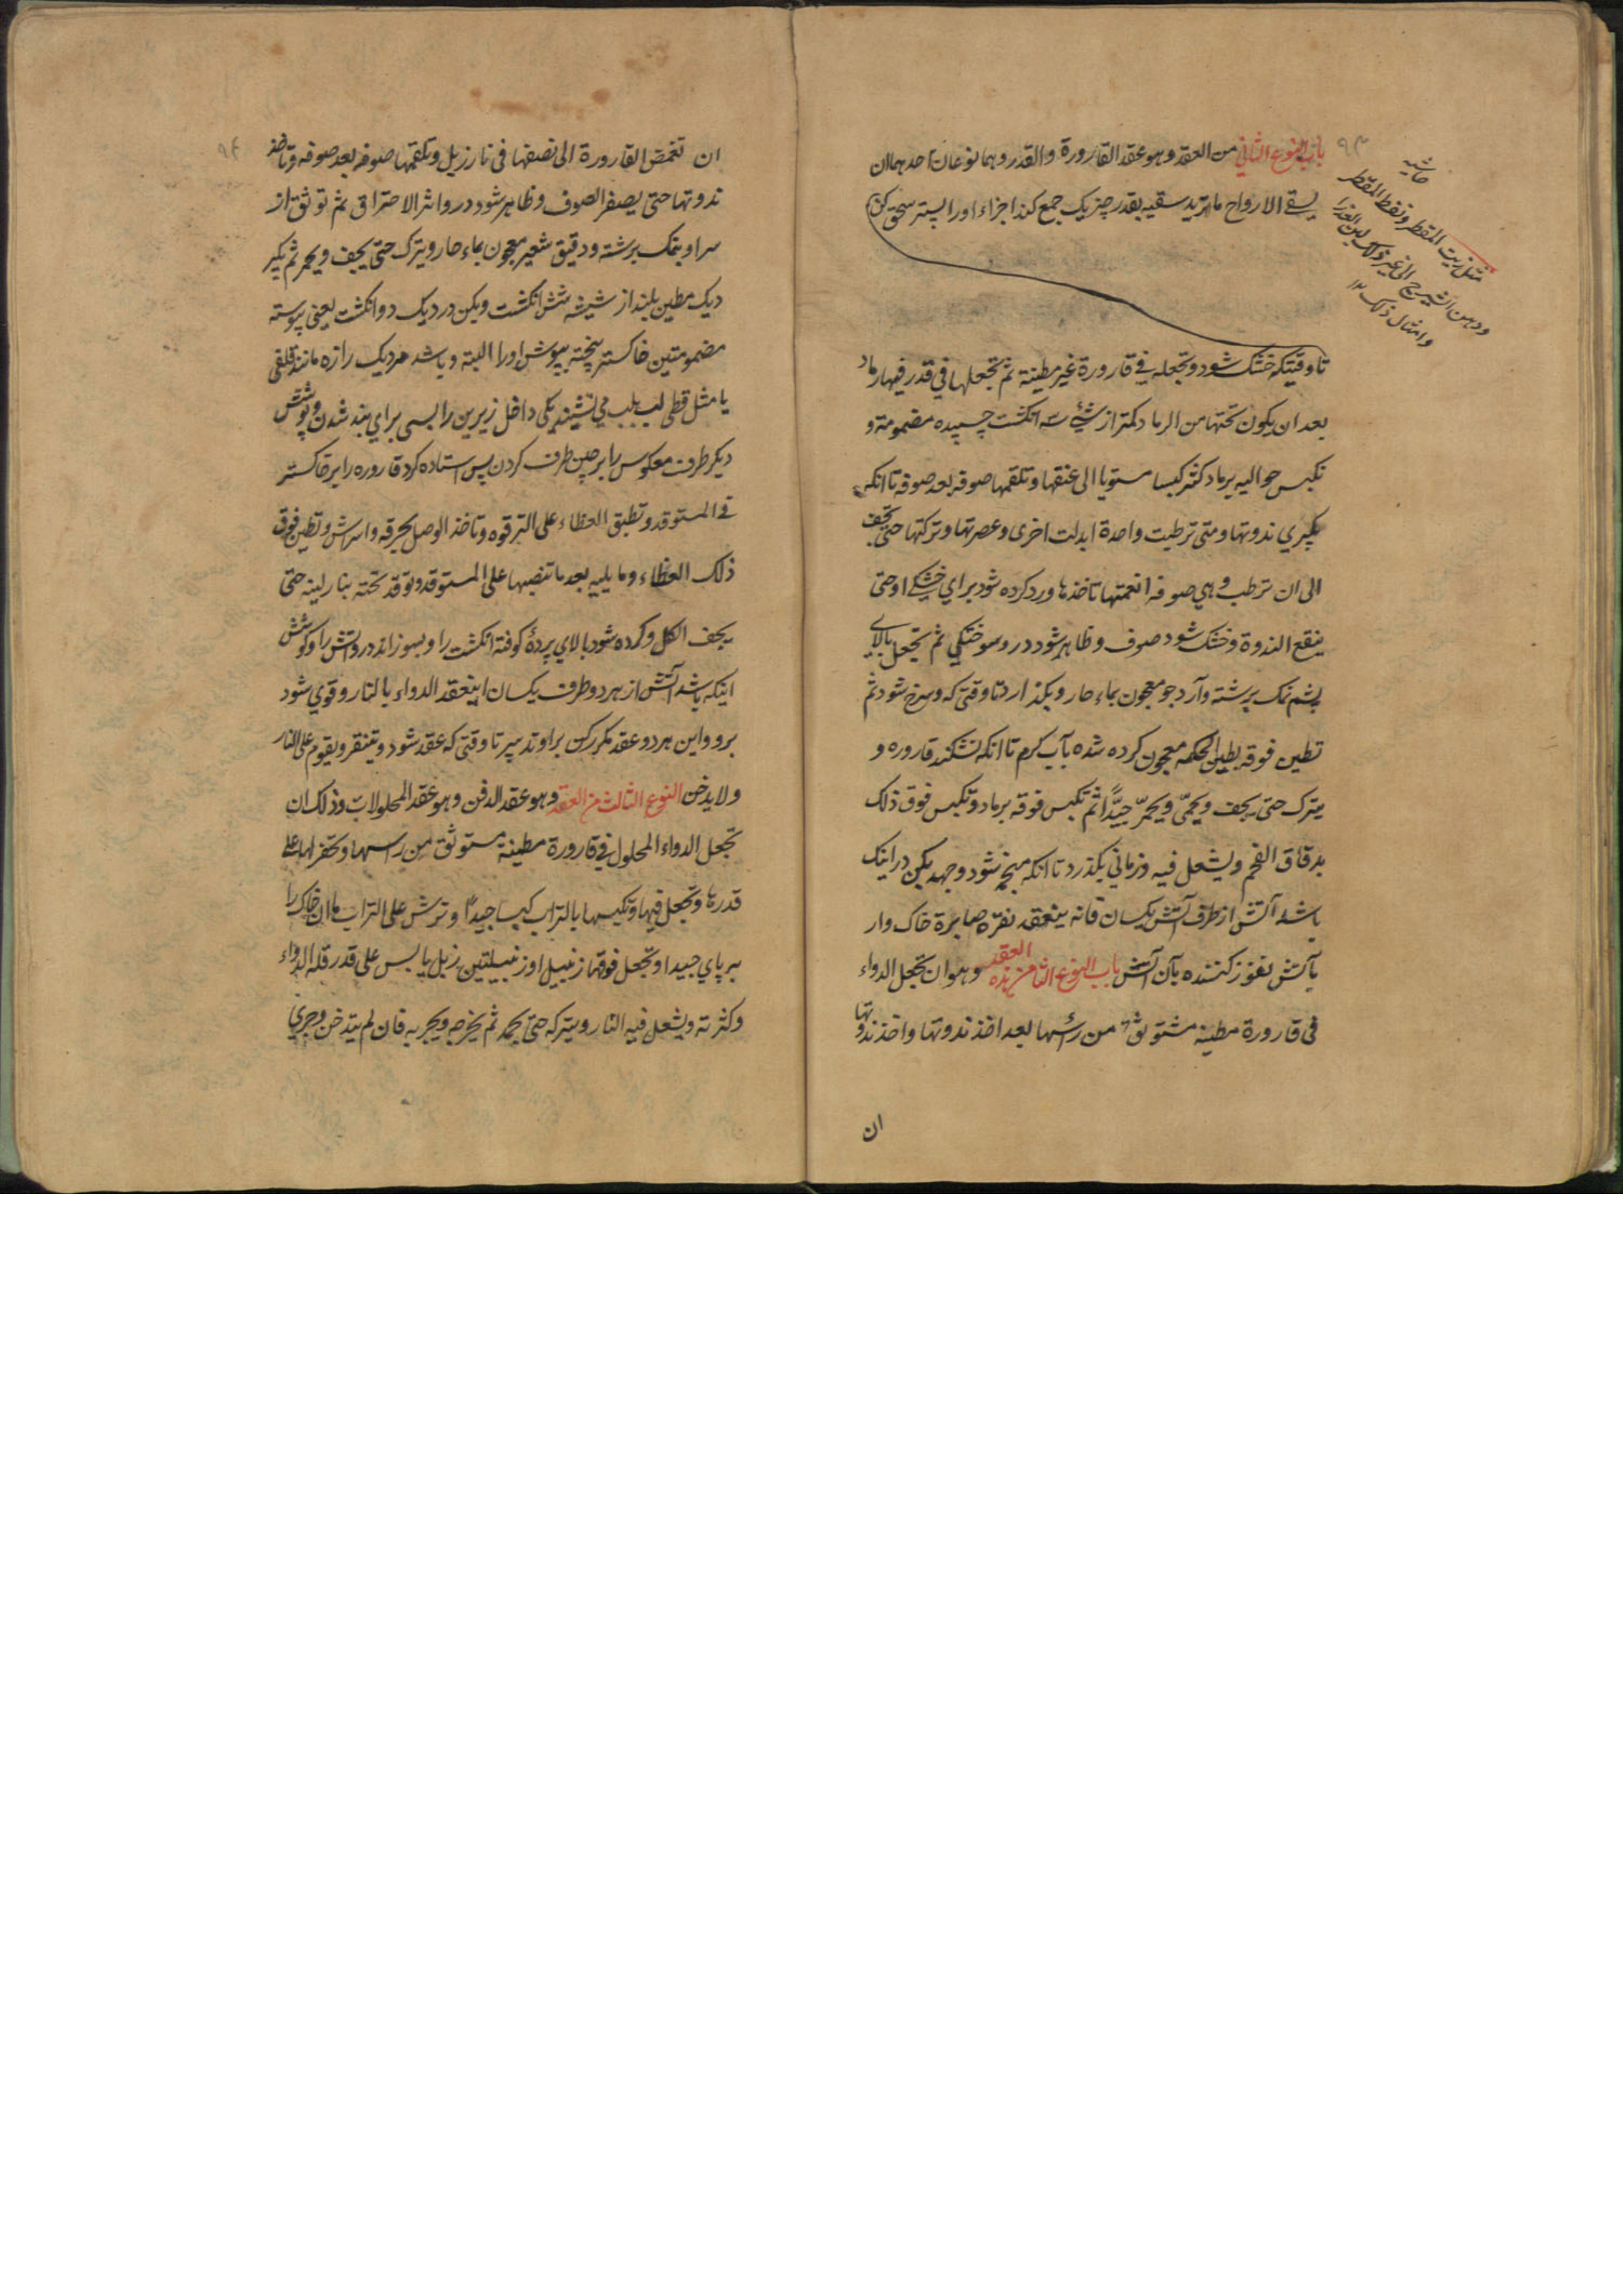 ٩٣
باب النوع الثاني من العقد وهو عقد القارورة والقدر وهما نوعان احدهما ان
يسقى الارواح ما تريد سقيه بقدر چیزیکه جمع کند اجزاء او را بستر سحق کن
تا وقتیکه خشک شود وتجعله في قارورة غیر مطینة ثم تجعلها في قدر فيها رماد
بعد ان يكون تحتها من الرماد کمتر از شئ سه انکشت چسپیده مضمومة و
تکبس حوالیه برماد کثیر کبسا مستویا الی عنقها وتلقمها صوفه بعد صوفه تا انکه
بگیري ندوتها ومتی ترطبت واحدة ابدلت اخری وعصرتها وترکتها حتی تجف
الی ان ترطب وهي صوفه القمتها تاخذها ورد کرده شود برای خشکی او حتی
ینقع الندوة وخشک شود صوف وظاهر شود در و سوختکي ثم تجعل بالای
پشم نمک برشته وآرد جو معجون بماء حار وبکذارد تا وقتی که وسرخ شود ثم
تطین فوقه بطین الحکمه معجون کرده شده بآب کرم تا انکه نشکند قاروره و
یترک حتی یجف ویحمی ویحمر جیدًا ثم تکبس فوقه برماد وتکبس فوق ذلک
بدقاق الفحم ویشعل فیه وزمانی بکذرد تا انکه منجمد شود وجهد بکن در اینک
باشد آتش از طرف آتش یکسان فانه ینعقد نقره صابرة خاک وار
بآتش نفوز کننده بآن آتش باب النوع الثاني من هذه العقد وهو ان تجعل الدواء
في قارورة مطینه مستوثق من رأسها بعد اخذ ندوتها واخذ ندوتها
ان
حاشیه
مثل زیت المقطر ونفط المقطر
ودهن الشیرج الی غیر ذلک لبن العذرا
وامثال ذلک ١٢
٩٤
ان تغمض القارورة الی نصفها في نار زبل وتلقمها صوفه بعد صوفه وتاخذ
ندوتها حتی یصفر الصوف وظاهر شود در و اثر الاحتراق ثم توثق از
سر او بنمک برشته ودقیق شعیر معجون بماء حار ویترک حتی یجف ویحمر ثم بکیر
دیک مطین بلند از شیشه شش انکشت وبکن در دیک دو انکشت یعنی پیوسته
مضمومتین خاکستر پخته بپوش او را البته وباشد هر دیک را زه مانند قلفی
یا مثل قطی لب بلب می نشیند یکی داخل زیرین را بسی برای بند شدن وپوشش
دیکر طرف معکوس را بر چین طرف کردن پس استاده کرد قاروره را بر خاکستر
في المستوقد وتطبق الغطاء علی الترقوه وتاخذ الوصل بخرقه واسراش وتطین فوق
ذلک الغطاء وما یلیه بعد ما تنصبها علی المستوقد وتوقد تحته بنار لینه حتی
یجف الکل وکرده شود بالای پردۀ کوفته انکشت را وبسوزاند در و آتش را وکوشش
اینکه باشد آتش از هر دو طرف یکسان اینعقد الدواء بالنار وقوي شود
برو واین هر دو عقد مکرر کن براو تدبیر تا وقتی که عقد شود وتنقر ویقوم علی النار
ولا یدخن النوع الثالث من العقد وهو عقد الدفن وهو عقد المحلولات وذلک ان
تجعل الدواء المحلول في قارورة مطینة مستوثق من راسها وتحفر لها علی
قدرها وتجعل فیها وتکبسها بالتراب کبسا جیدًا وترش علی التراب ما ان خاک را
بر پاي جیدا وتجعل فوقها زنبیل او زنبیلتین زبل یابس علی قدر قلة الدواء
وکثرته ویشعل فیه النار ویترکه حتی یجمد ثم یخرجه ویجربه فان لم یتدخن وجري